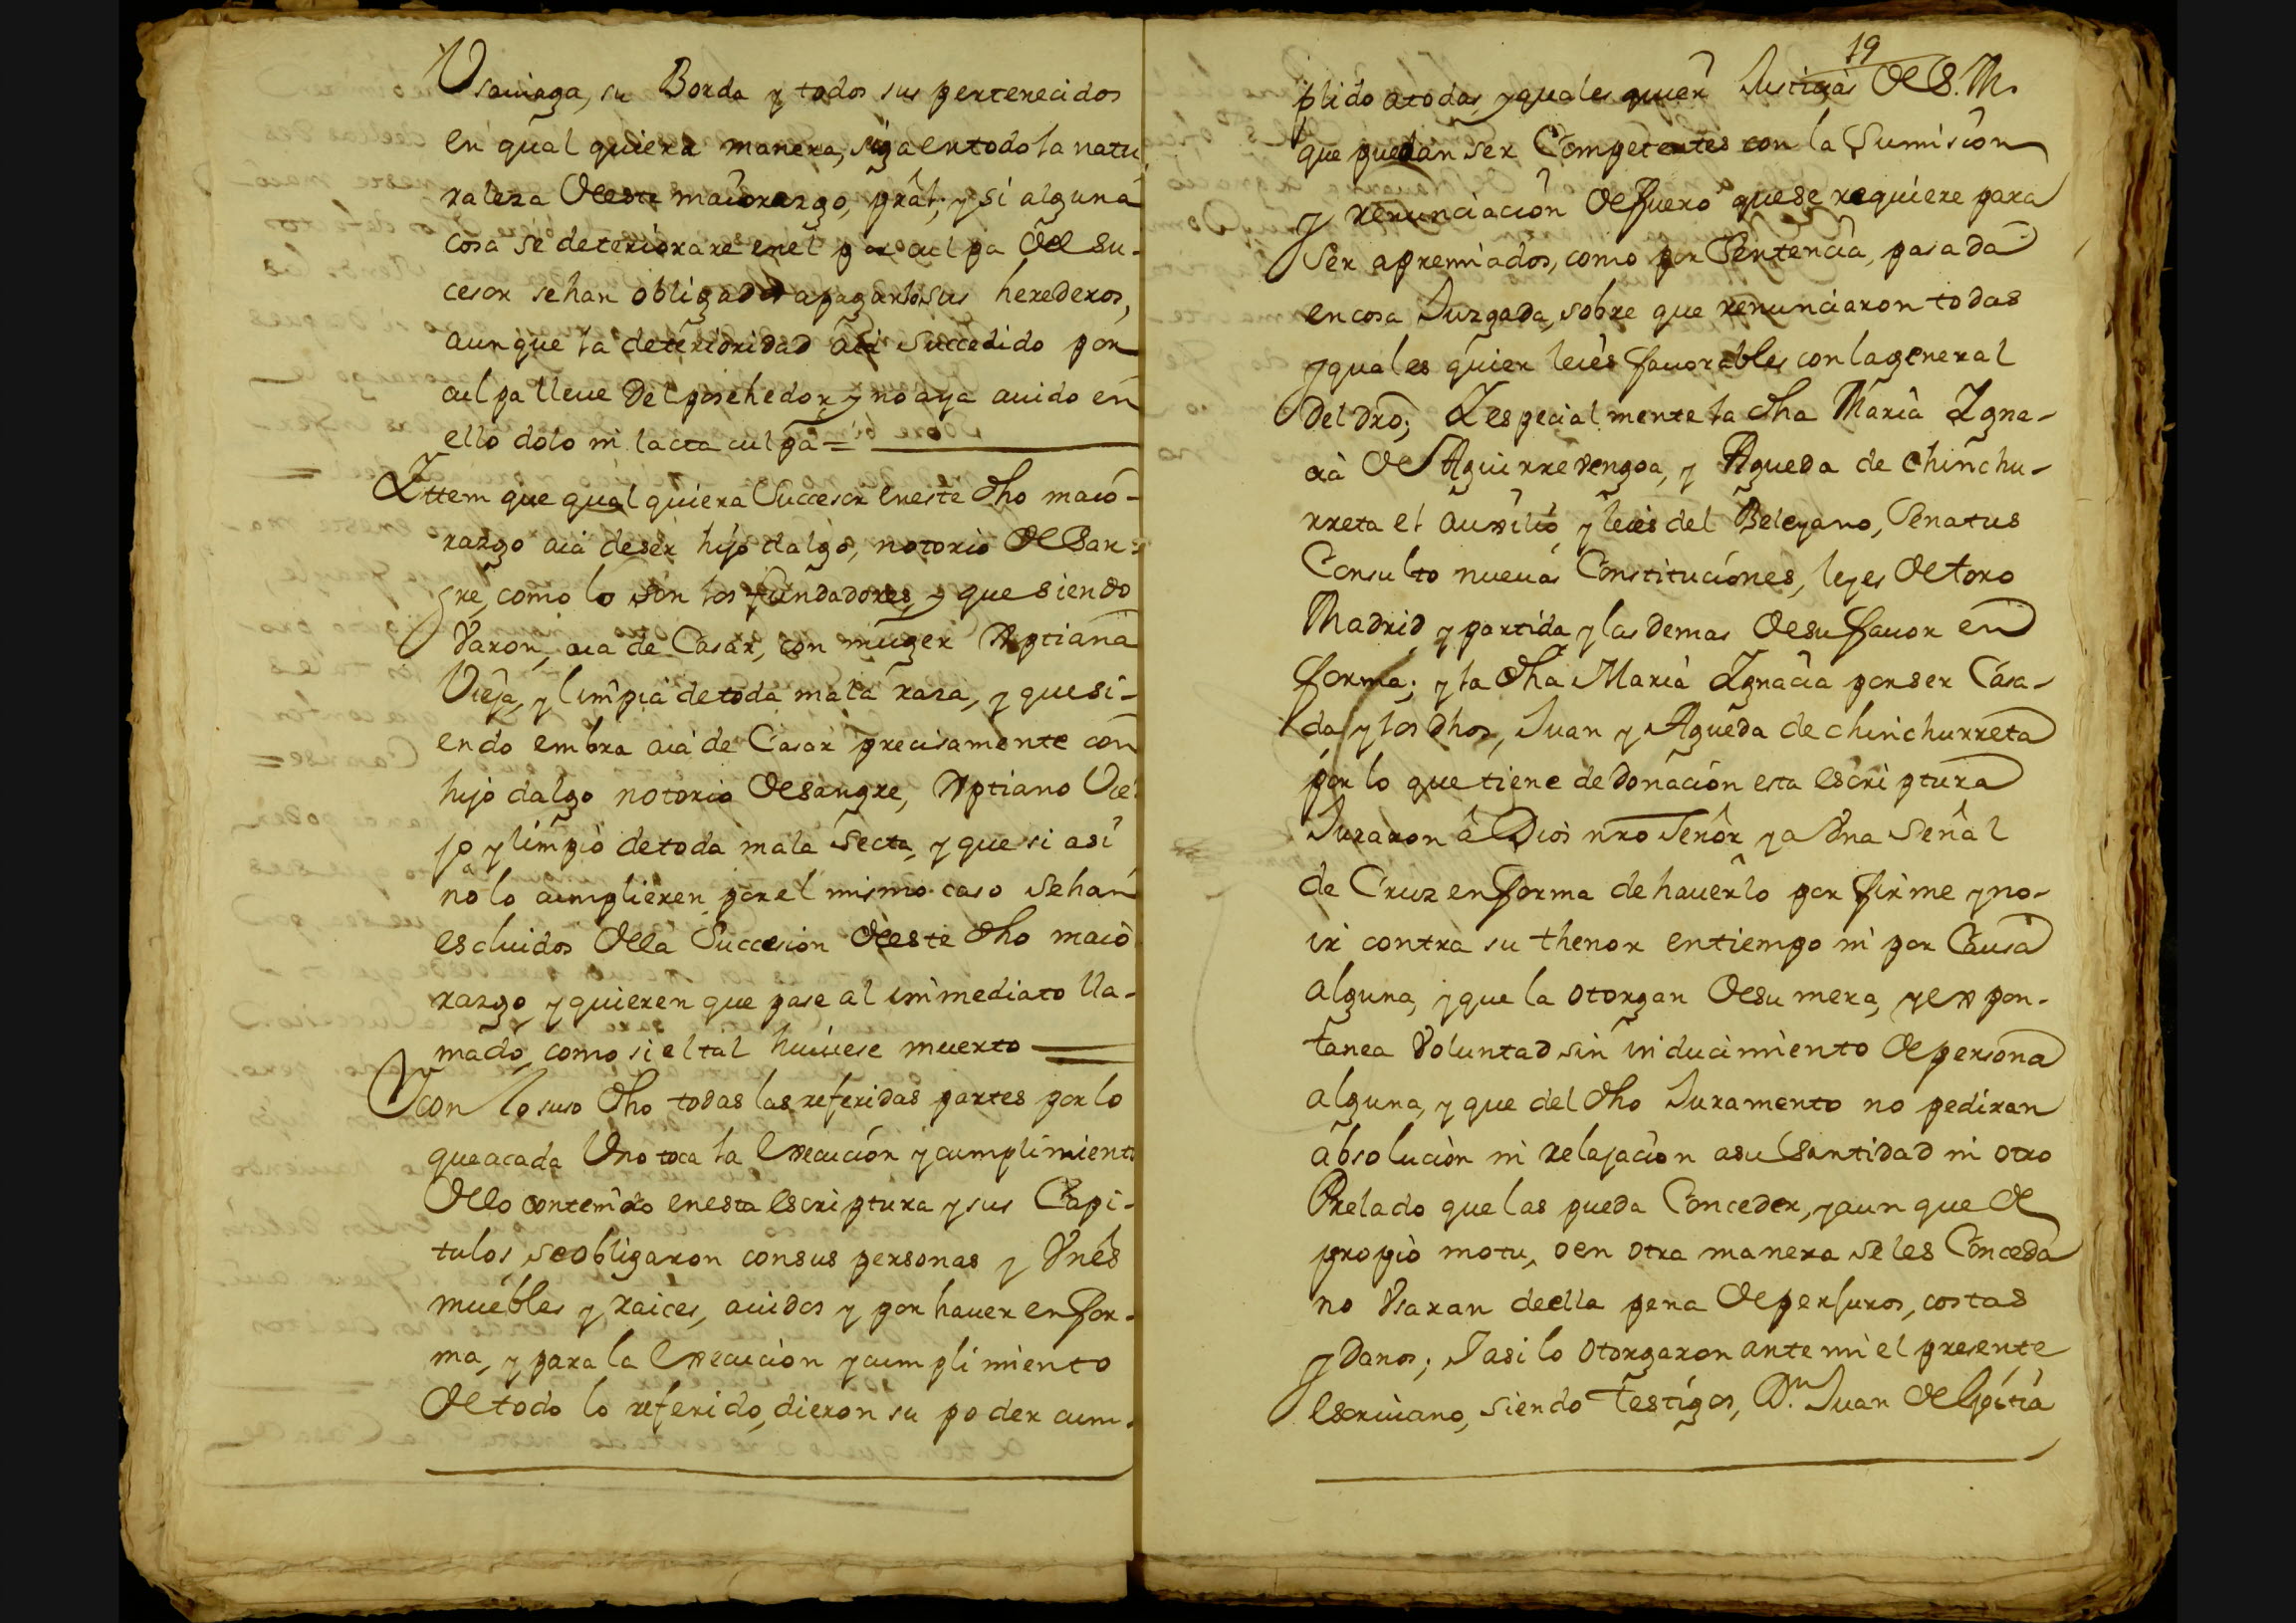 Usauiaga, su Borda y todos sus pertenecidos
en qual quiera manera, siga en todo la natu
raleza de este maiorazgo, prãl; y si alguna
cosa se deteriorare en el por culpa de su-
cesor se han obligados a pagarlo sus herederos,
aunque la deterioridad aia succedido por
culpa lleue del poshehedor y no aya auido en
ello dolo ni lacta culpa =
Ittem que qual quiera Succesor en este dho maio-
razgo aia de ser hijo dalgo, notorio de San-
gre, como lo son los fundadores, y que siendo
Varon, aia de Casar, con muger Xptiana
Vieja, y limpia de toda mala raza, y que si-
endo embra aia de Casar precisamente con
hijo dalgo notorio de sangre, Xptiano Vie-
jo y limpio de toda mala secta, y que si asi
no lo cumplieren por el mismo caso se han
escluidos de la Succesion de este dho maio
razgo y quieren que pase al immediato lla-
mado, como si el tal huuiese muerto
Y con lo suso dho todas las referidas partes por lo
que a cada Uno toca la execucion y cumplimiento
de lo contenido en esta escriptura y sus Capi-
tulos se obligaron con sus personas y Vnes
muebles y raices, auidos y por hauer en for-
ma, y para la execucion y cumplimiento
de todo lo referido, dieron su poder cum-
19
plido a todas, y quales quier Justicias de S. M.
que puedan ser Competentes con la Sumision
y renunciacion de fuero que se requiere para
ser apremiados, como por Sentencia, pasada
en cosa Juzgada, sobre que renunciaron todas
y quales quier leies fauorables con la general
del dro; Y especial mente la dha Maria Igna-
cia de Aguirrevengoa, y Agueda de Chinchu-
rreta el auxilio y leies del Beleyano, Senatus
Consulto nueuas Constituciones, leyes de toro
Madrid y partida y las demas de su fauor en
forma; y la dha Maria Ignacia por ser Casa-
da y los dhos, Juan y Agueda de chinchurreta
por lo que tiene de donacion esta escriptura
Juraron â Dios nro Señor y a Vna Señal
de Cruz en forma de hauerlo por firme y no-
ir contra su thenor en tiempo ni por Causa
alguna, y que la otorgan de su mera, y expon-
tanea Voluntad sin inducimiento de persona
alguna, y que del dho Juramento no pediran
absolucion ni relajacion a su Santidad ni otro
Prelado que las pueda Conceder, y aun que de
propio motu, o en otra manera se les Conceda
no Vsaran de ella pena de perjuros, costas
y danos; Y asi lo otorgaron ante mi el presente
escriuano, siendo testigos, Dn. Juan de